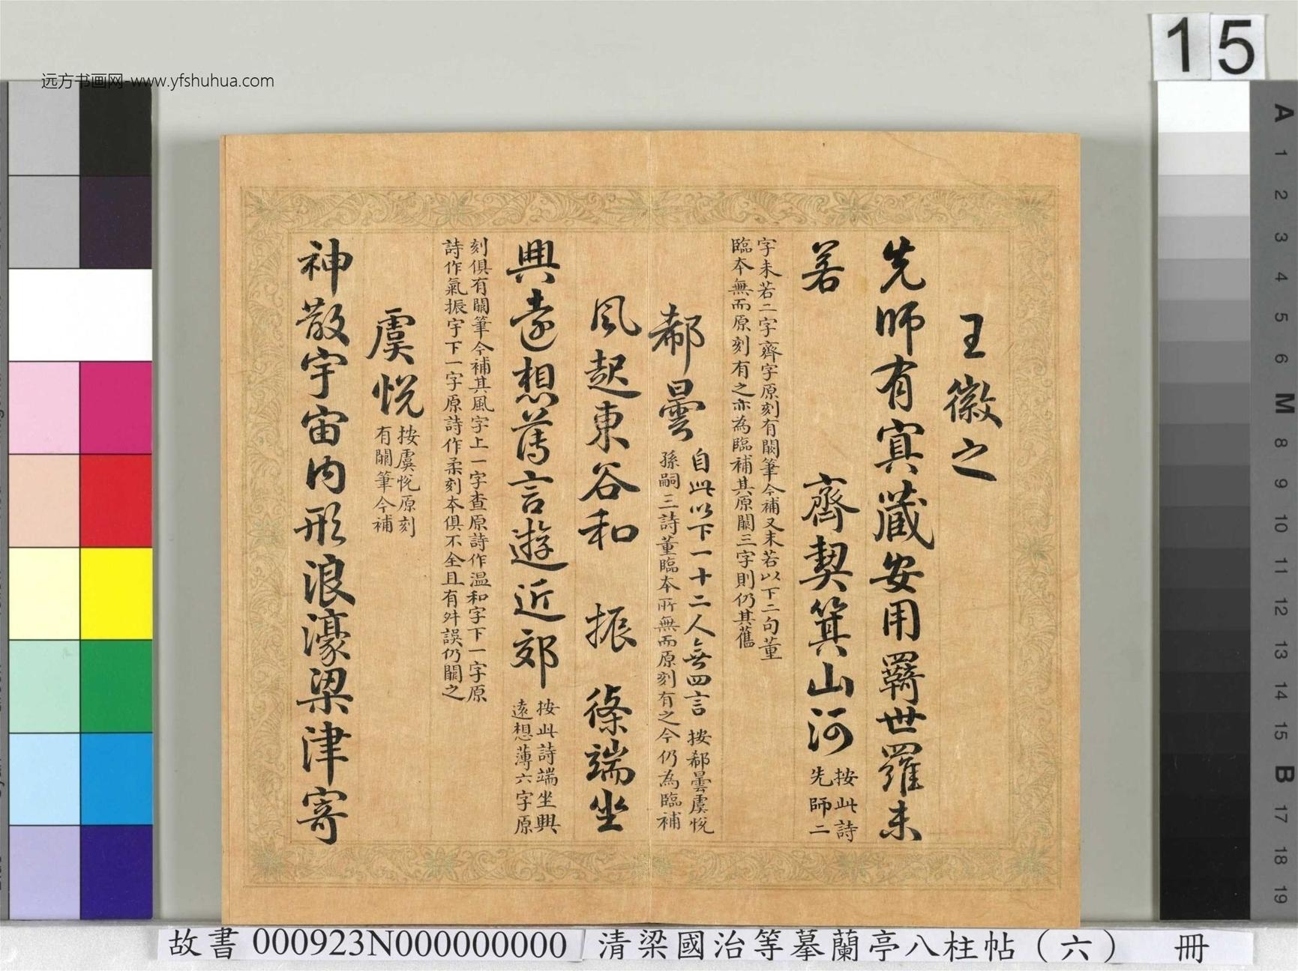 远方书画网-www.yfshuhua.com
15
王徽之
先師有冥藏安用羈世羅未
若 齊契箕山河 按此詩
先師二
字未若二字齊字原刻有闕筆今補又未若以下二句董
臨本無而原刻有之亦為臨補其原闕三字則仍其舊
郗曇 自此以下一十二人無四言 按郗曇虞悅
孫嗣三詩董臨本所無而原刻有之今仍為臨補
風起東谷和 振 條端坐
興遠想薄言遊近郊 按此詩端坐興
遠想薄六字原
刻俱有闕筆今補其風字上一字查原詩作温和字下一字原
詩作氣振字下一字原詩作柔刻本俱不全且有舛誤仍闕之
虞悅 按虞悅原刻
有闕筆今補
神散宇宙内形浪濠梁津寄
A
1
2
3
4
5
6
M
8
9
10
11
12
13
14
15
B
17
18
19
故書 000923N000000000 清梁國治等摹蘭亭八柱帖(六) 冊